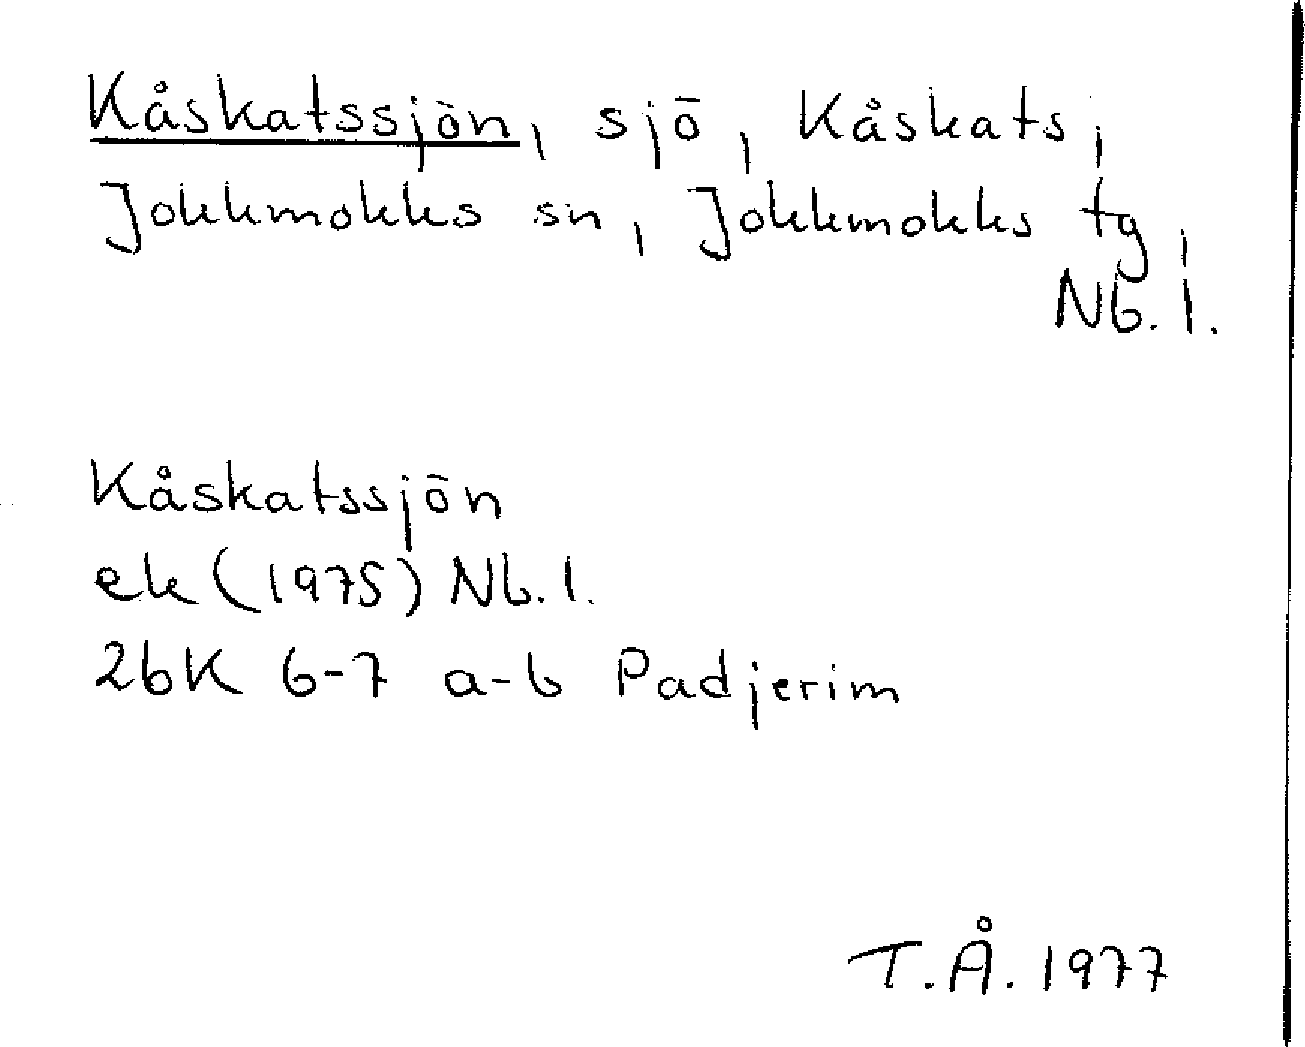 Kåskatssjön, sjö, Kåskats,
Jokkmokks sn, Jokkmokks tg,
Nb. l.
Kåskatssjön
ek (1975) Nb. l.
26K 6-7 a-b Padjerim
T.Å. 1977